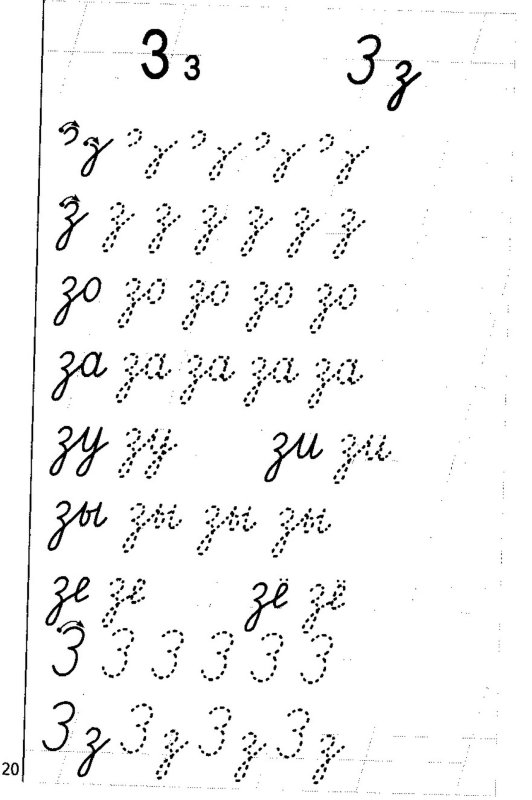 З з З з
з з з з з з
з з з з з з з
зо зо зо зо зо
за за за за за
зу зу зи зи
зы зы зы зы
зе зе зё зё
З З З З З З
З з З з З з З з
20